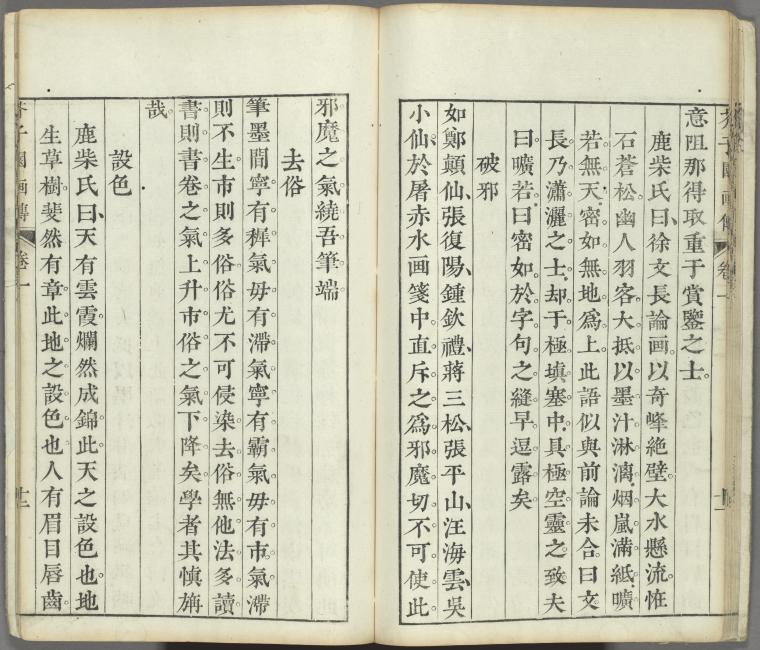 意阻那得取重于賞鑒之士。
鹿柴氏曰、徐文長論画。以奇峰絶壁。大水懸流。怪
石蒼松。幽人羽客。大抵以墨汁淋漓。烟嵐滿紙。曠
若無天。密如無地。爲上。此語似與前論未合。曰、文
長乃瀟灑之士。却于極填塞中。具極空靈之致。夫
曰曠若。曰密如。於字句之縫。早逗露矣。
破邪
如鄭顛仙、張復陽、鍾欽禮、蔣三松、張平山、汪海雲、吳
小仙、於屠赤水画箋中。直斥之爲邪魔。切不可使此
邪魔之氣。繞吾筆端
去俗
筆墨間寧有穉氣。毋有滯氣。寧有霸氣。毋有市氣。滯
則不生。市則多俗。俗尤不可侵染。去俗無他法。多讀
書則書卷之氣上升。市俗之氣下降矣。學者其慎旃
哉。
設色
鹿柴氏曰、天有雲霞。爛然成錦。此天之設色也。地
生草樹。斐然有章。此地之設色也。人有眉目唇齒
芥子園画傳
卷一
芥子園画傳
卷一